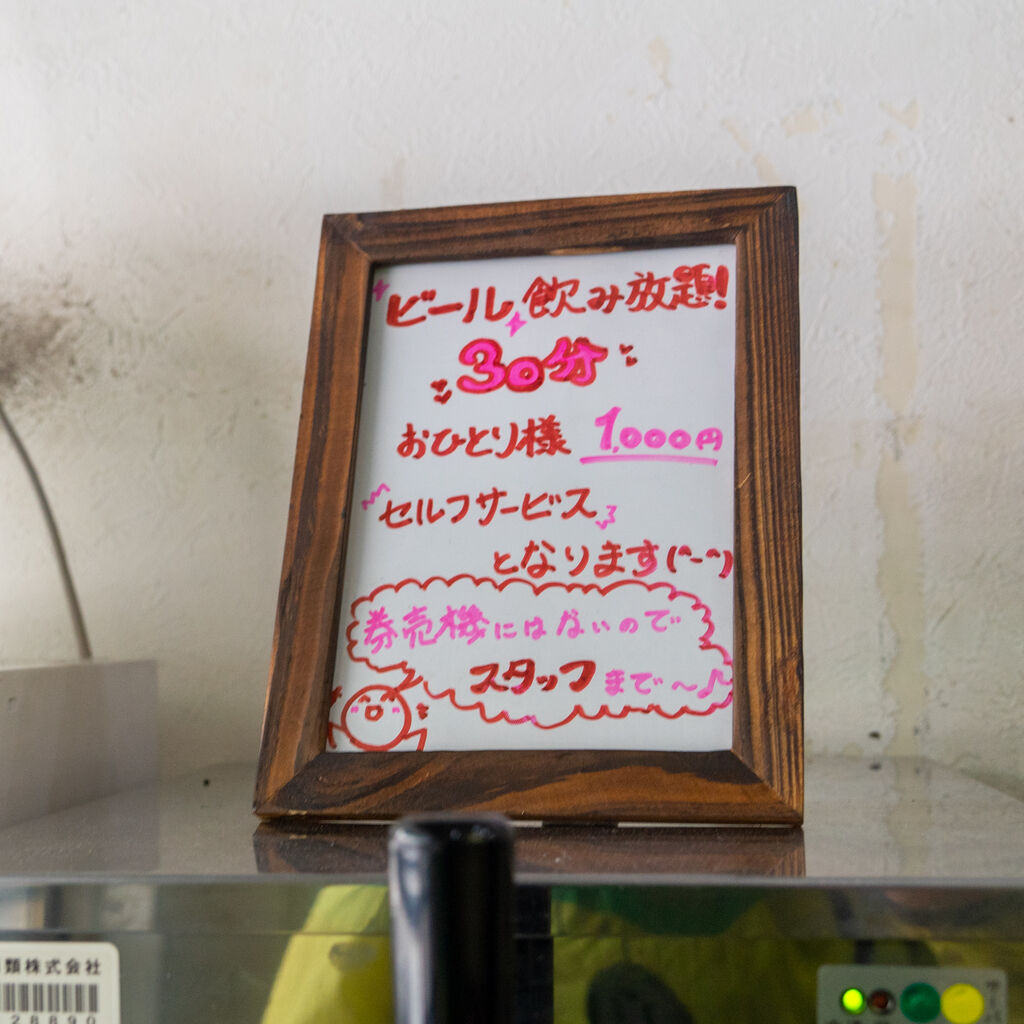 ビール飲み放題!
30分
おひとり様 1,000円
セルフサービス
となります(^-^)
券売機にはないので
スタッフまで〜♪
類株式会社
28890